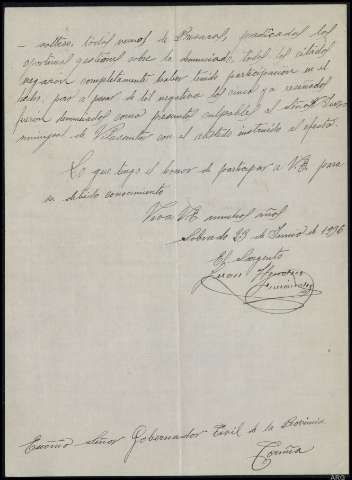 - soltero, todos vecinos de Presaras, practicadas las
oportunas gestiones sobre lo denunciado, todos los citados
negaron completamente haber tenido participacion en el
hecho, pero a pesar de tal negativa los cinco ya reseñados
fueron denunciados como presuntos culpables al Señor Juez
municipal de Vilasantar con el atestado instruido al efecto.
Lo que tengo el honor de participar a V.E. para
su debido conocimiento
Viva V.E. muchos años
Sobrado 23 de Junio de 1936
El Sargento
Juan
Excmo Señor Gobernador Civil de la Provincia
Coruña
ARG